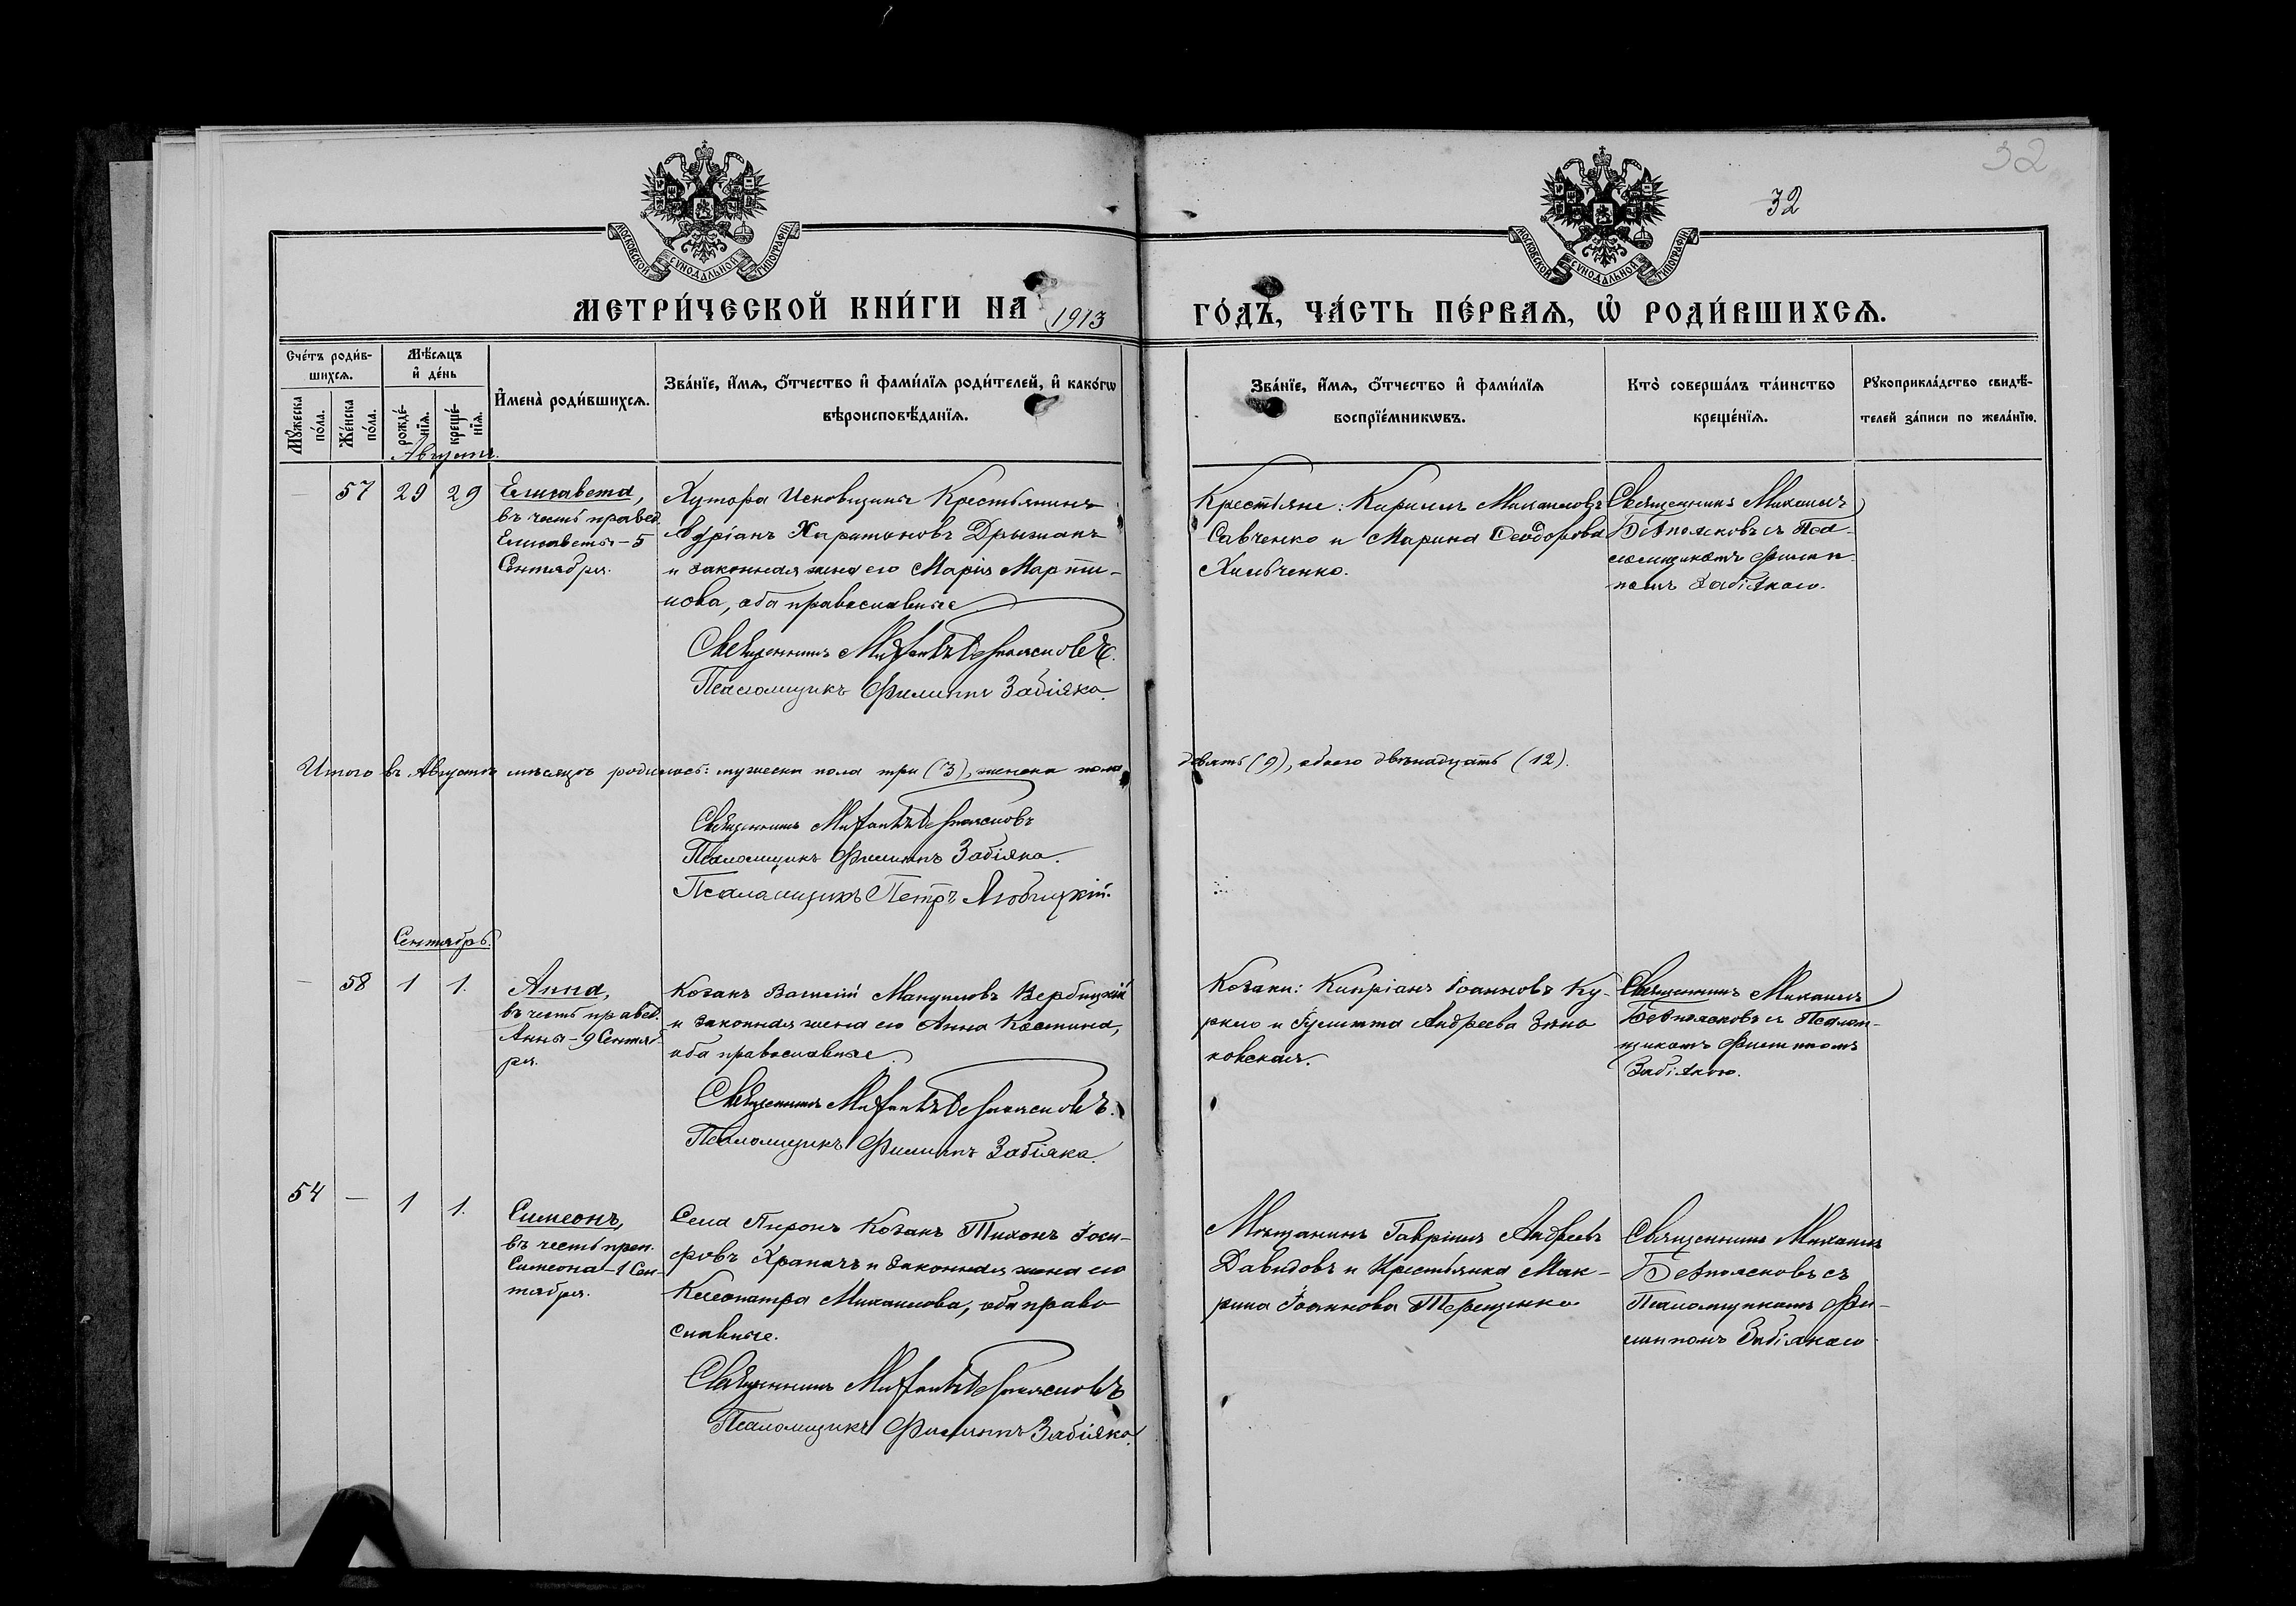 32
32
МОСКОВСКОЙ СѴНОДАЛЬНОЙ ТИПОГРАФІИ
МОСКОВСКОЙ СѴНОДАЛЬНОЙ ТИПОГРАФІИ
МЕТРИ́ЧЕСКОЙ КНИ́ГИ НА 1913 ГО́ДЪ, ЧА́СТЬ ПЕ́РВАЯ, Ѡ РОДИ́ВШИХСЯ.
Сче́тъ роди́в-
шихся.
Мꙋ́жеска по́ла.
Же́нска по́ла.
Мѣ́сяцъ
и де́нь
рожде́-
нїя.
креще́-
нїя.
Имена̀ роди́вшихся.
Зва́нїе, и́мя, ѻ́тчество и фами́лїя роди́телей, и како́гѡ
вѣроисповѣ́данїя.
Зва́нїе, и́мя, ѻ́тчество и фами́лїя
воспрїе́мникѡвъ.
Кто̀ соверша́лъ та́инство
креще́нїя.
Рꙋкоприкла́дство свидѣ́-
телей за́писи по жела́нїю.
Августъ.
57 29 29
Елисавета,
въ честь правед.
Елисаветы – 5
Сентября.
Хутора Крестьянинъ
Харитоновъ
и законная жена его Марія Марти-
нова, оба православные
Священникъ Михаилъ Безпоясковъ.
Псаломщикъ Филиппъ Забіяка.
Крестьяне: Кириллъ Михаиловъ
Савченко и Марина Ѳеодорова
Хильченко.
Священникъ Михаилъ
Безпоясковъ съ Пса-
ломщикомъ Филип-
помъ Забіякою.
Итого въ Августѣ мѣсяцѣ родилось: мужеска пола три (3), женска пола девять (9), обоего двѣнадцать (12).
Священникъ Михаилъ Безпоясковъ
Псаломщикъ Филиппъ Забіяка.
Псаломщикъ Петръ
Сентябрь.
– 58 1 1.
Анна,
въ честь правед.
Анны – 9 Сентяб-
ря.
Козакъ Василій Вербицкій
и законная жена его Анна Костина,
оба православные.
Священникъ Михаилъ Безпоясковъ.
Псаломщикъ Филиппъ Забіяка.
Козаки: Кипріанъ Іоанновъ Ку-
и Іулитта Андреева Зѣнь-
ковская.
Священникъ Михаилъ
Безпоясковъ съ Псалом-
щикомъ Филиппомъ
Забіякою.
54 – 1 1.
Симеонъ,
въ честь преп.
Симеона – 1 Сен-
тября.
Села Козакъ Тихонъ Іоси-
фовъ Храпачъ и законная жена его
Клеопатра Михаилова, оба право-
славные.
Священникъ Михаилъ Безпоясковъ
Псаломщикъ Филиппъ Забіяка.
Мѣщанинъ Гавріилъ Андреевъ
Давидовъ и Крестьянка Мак-
рина Іоаннова Терещенко
Священникъ Михаилъ
Безпоясковъ съ
Псаломщикомъ Фи-
липпомъ Забіякою